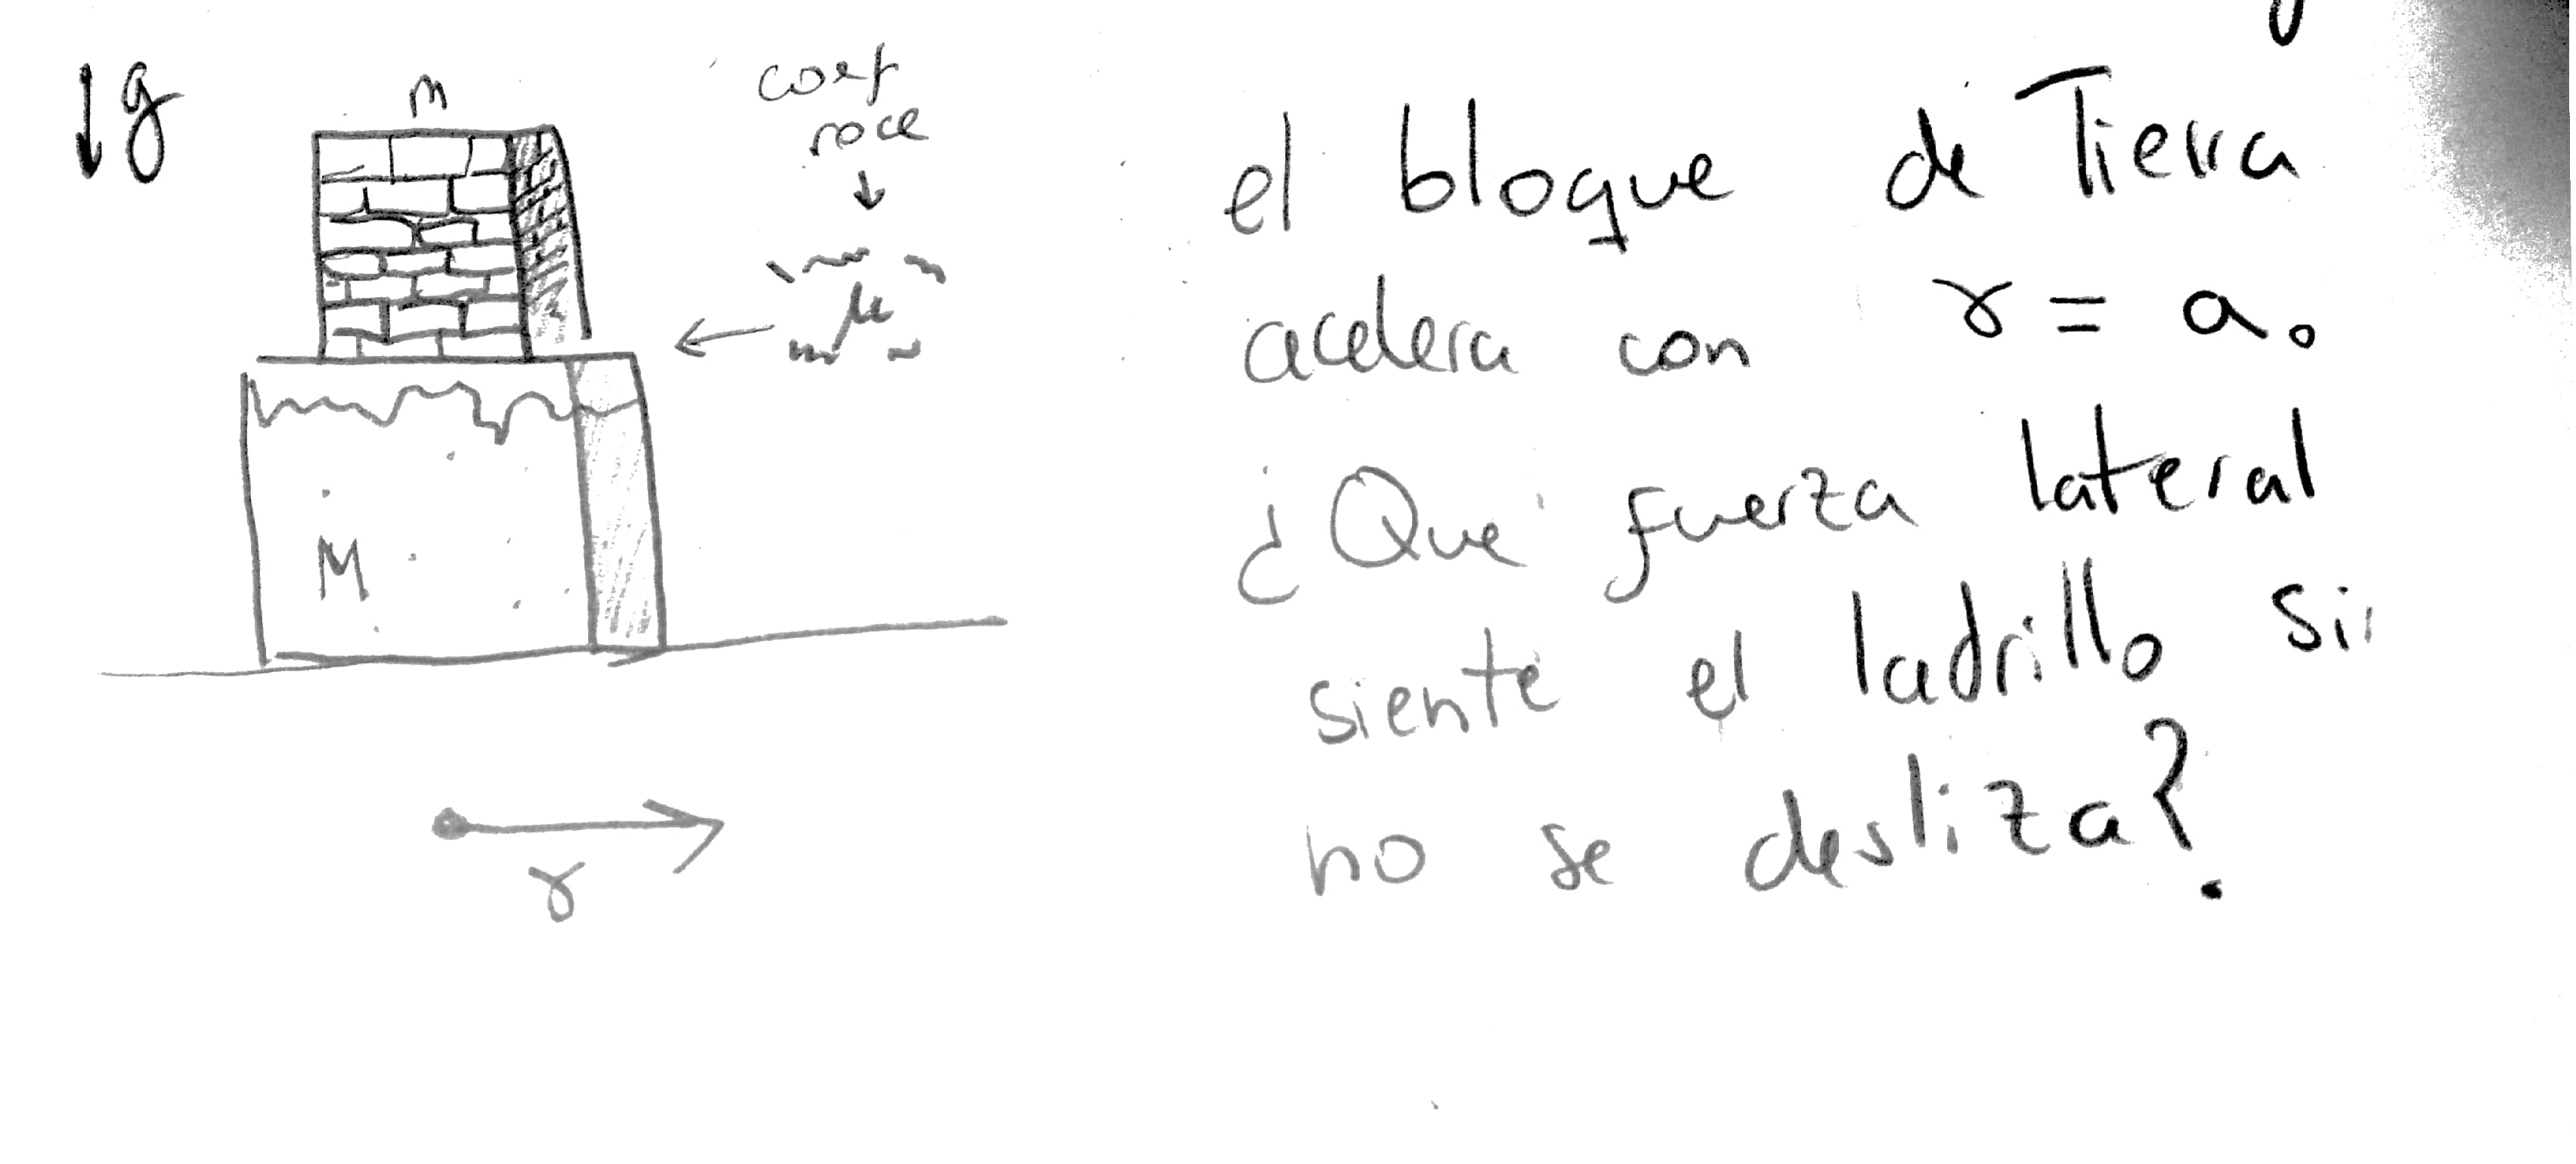 ↓g
m
coef
roce
↓
μ
M
γ
el bloque de Tierra
acelera con γ = a₀
¿Que fuerza lateral
siente el ladrillo si
no se desliza?